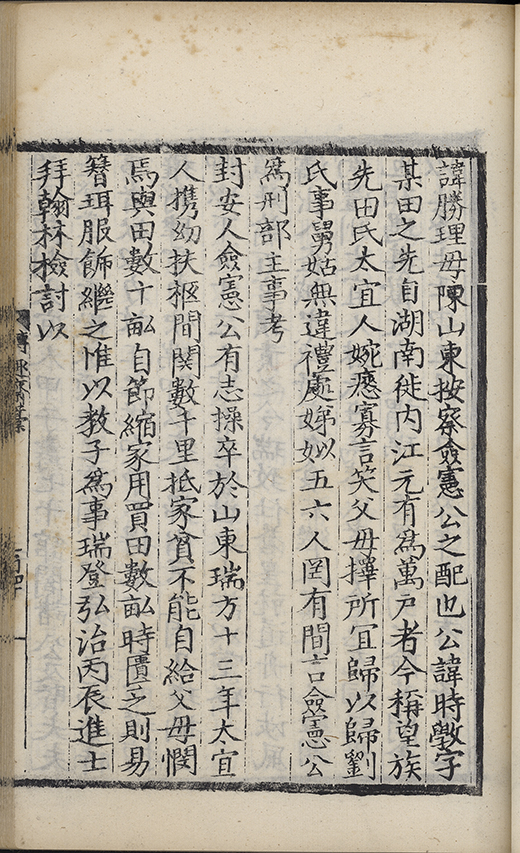 諱勝理母陳山東按察僉憲公之配也公諱時斆字
某田之先自湖南徙内江元有爲萬戸者今稱望族
先田氏太宜人婉慝寡言笑父母擇所宜歸以歸劉
氏事舅姑無違禮處娣姒五六人罔有間言僉憲公
爲刑部主事考
封安人僉憲公有志操卒於山東瑞方十三年太宜
人携幼扶柩間関數千里抵家貧不能自給父母憫
焉與田數十畝自節縮家用買田數畝時匱乏則易
簪珥服飾繼之惟以教子爲事瑞登弘治丙辰進士
拜翰林檢討以